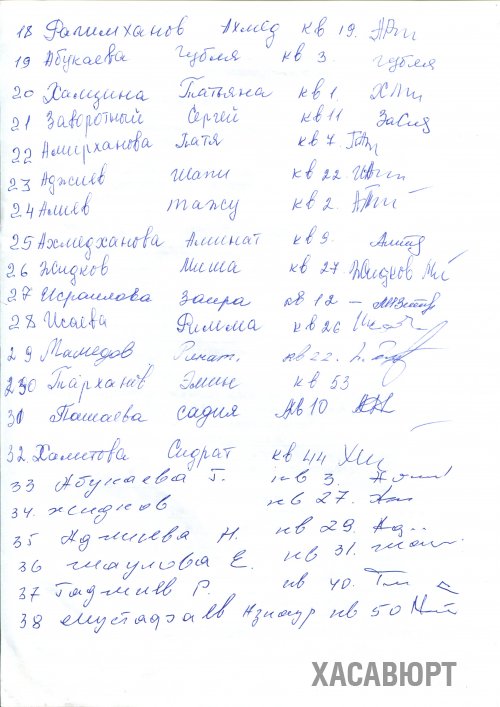 18 Рагимханов Ахмед кв 19.
19 Абукаева Губля кв 3. Губля
20 Хамцина Татьяна кв 1.
21 Заворотный Сергей кв 11
22 Амирханова Патя кв 7.
23 Аджиев Шапи кв 22.
24 Алиев тажу кв 2.
25 Ахмедханова Аминат кв 9.
26 Жидков Миша кв 27. Жидков
27 Исраилова Заира кв 12 –
28 Исаева Римма кв 26
29 Мамедов Ринат. кв 22.
30 Тарханов Эмин кв 53
31 Пашаева садия кв 10
32 Халитова Сидрат кв 44
33 Абукаева Г. кв 3.
34. жидков кв 27.
35 Аджиева Н. кв 29.
36 шаулова Е. кв 31.
37 Гаджиев Р. кв 40.
38 мустафаев кв 50
ХАСАВЮРТ